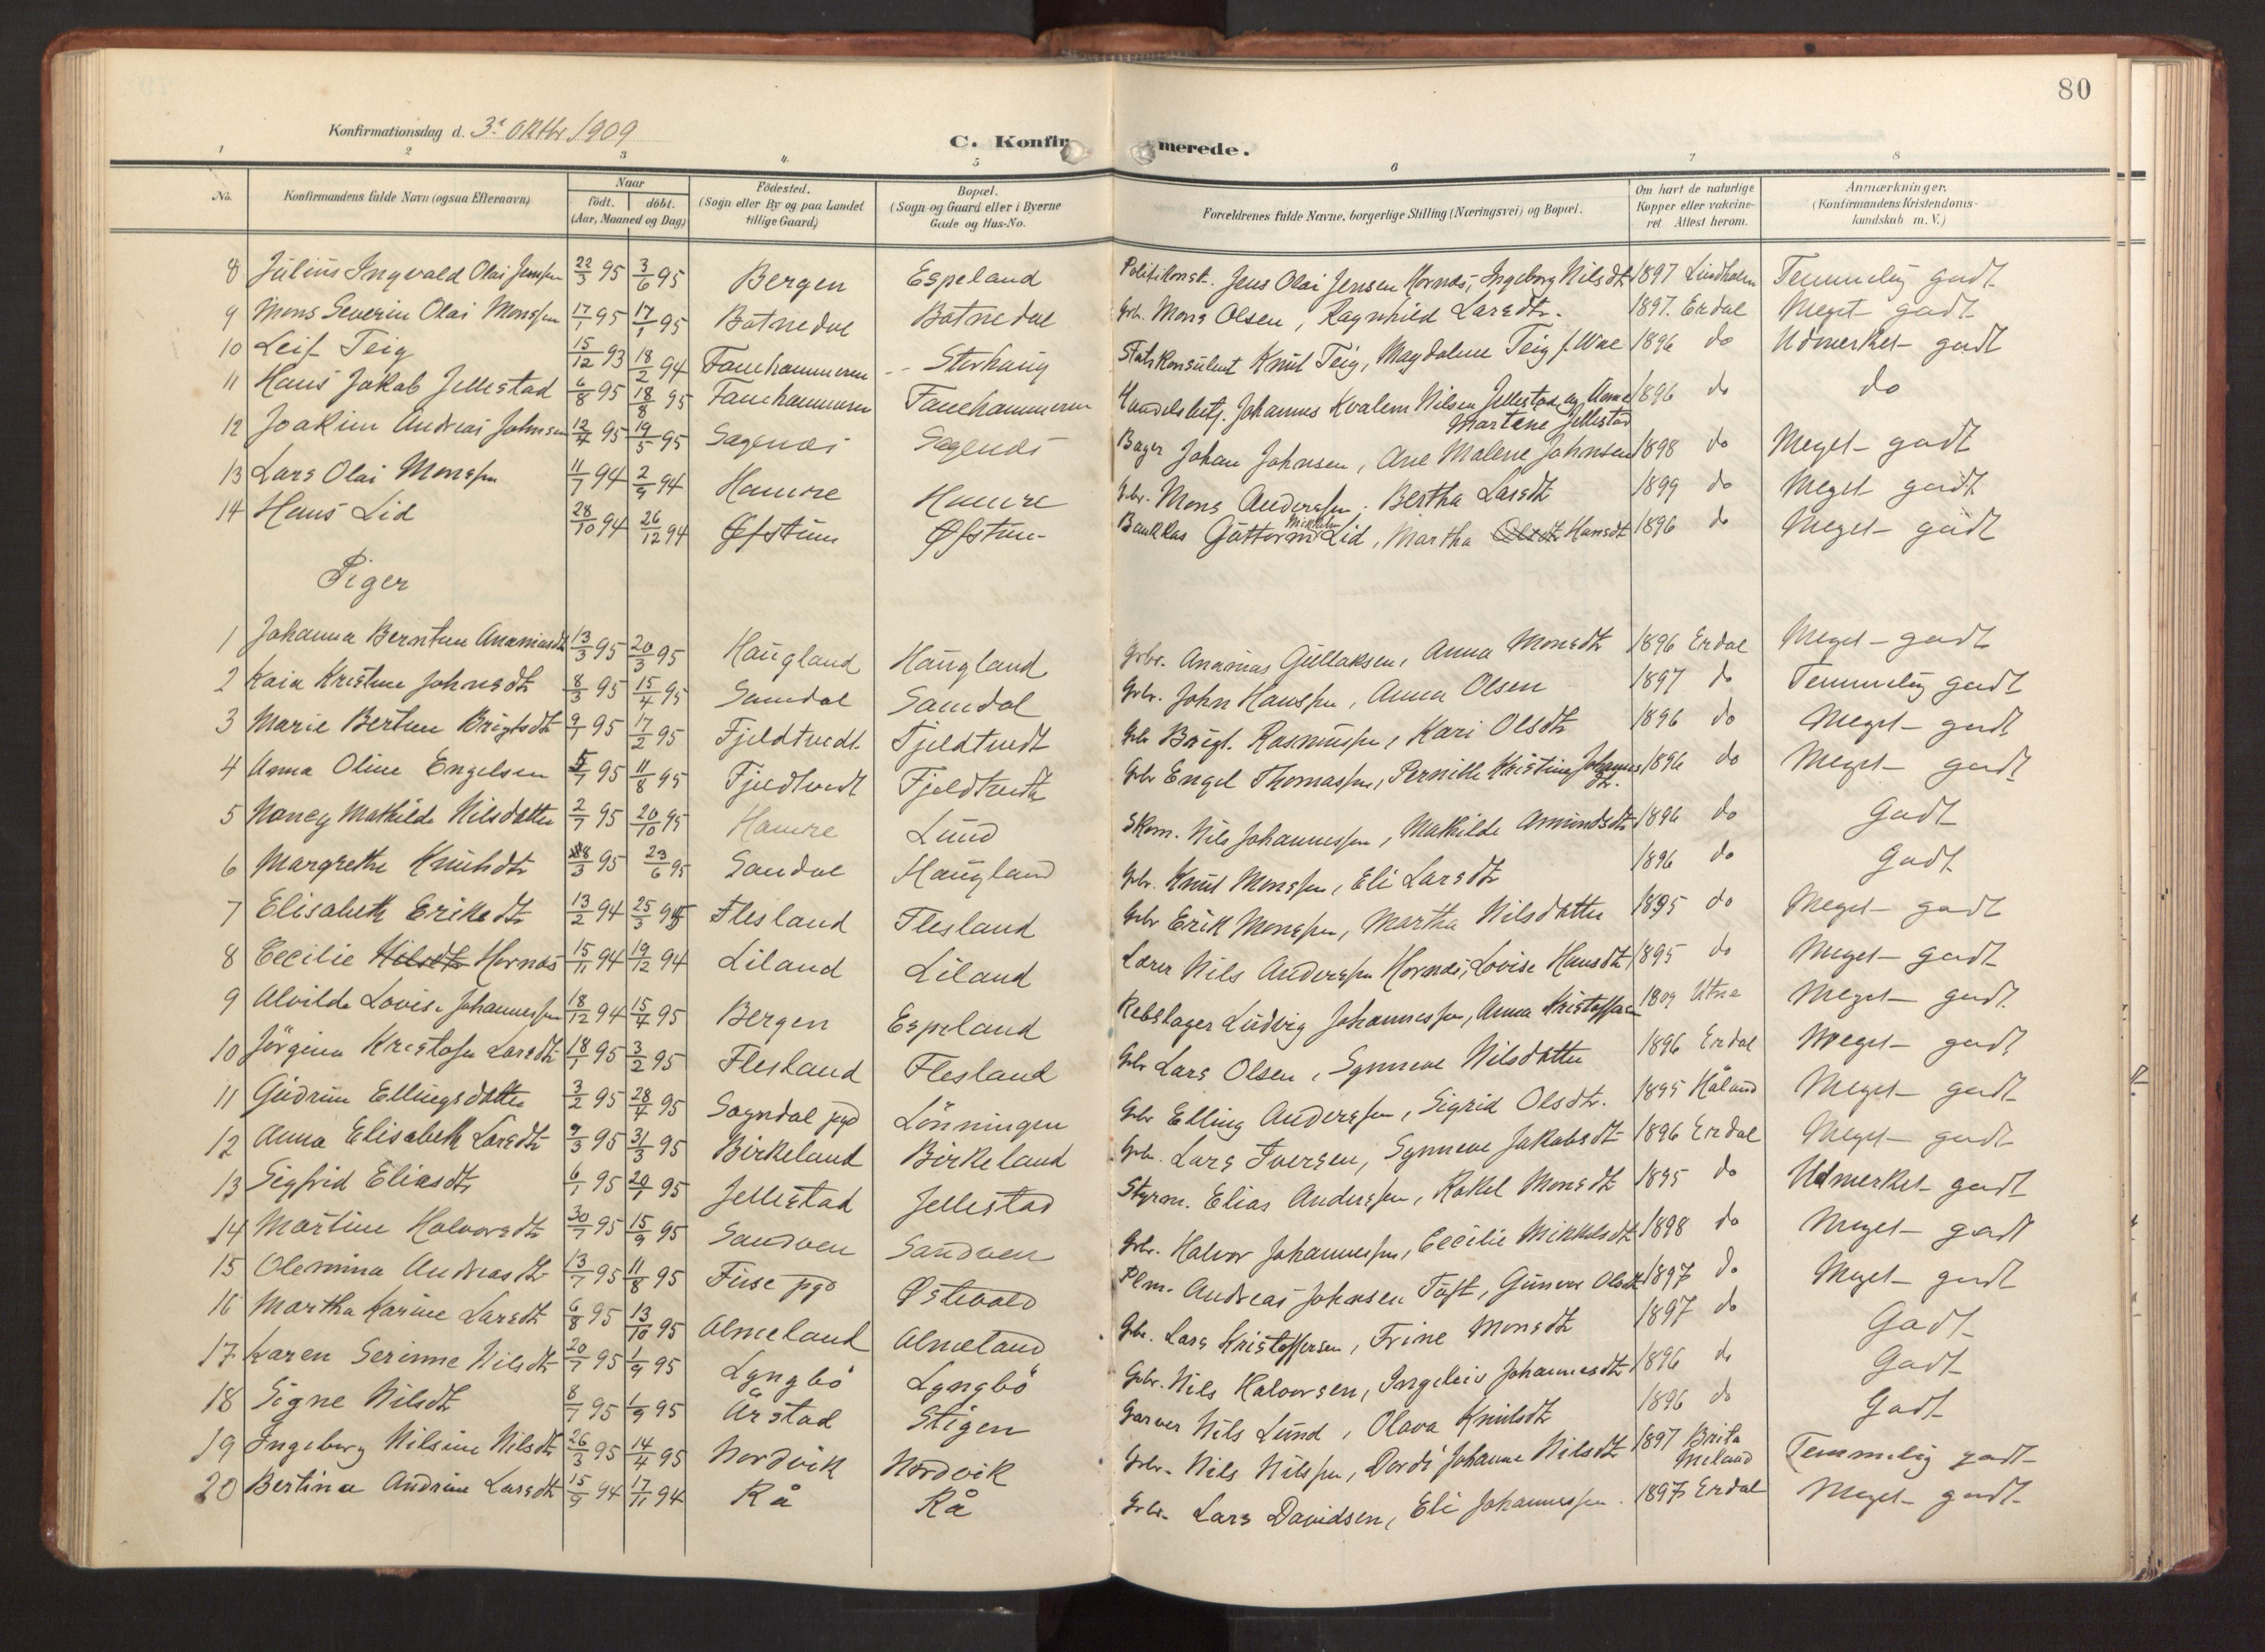 80
Konfirmationsdag d. 3. Oktbr 1909
C. Konfirmerede.
1 2 3 4. 5 6 7 8
No. Konfirmandens fulde Navn (ogsaa Efternavn) Naar födt. döbt. (Aar, Maaned og Dag) Födested. (Sogn eller By og paa Landet tillige Gaard) Bopæl. (Sogn og Gaard eller i Byerne Gade og Hus-No. Forældrenes fulde Navne, borgerlige Stilling (Næringsvei) og Bopæl. Om havt de naturlige Kopper eller vakcineret. Attest herom. Anmærkninger. (Konfirmandens Kristendomskundskab m. V.)
8 Julius Ingvald Olai Jensen 22/3 95 3/6 95 Bergen Espeland Politikonst. Jens Olai Jensen Hornæs, Ingeborg Nilsdtr 1897 Lindholm Temmelig godt
9 Mons Severin Olai Monssen 17/1 95 17/1 95 Botnedal Botnedal Gbr. Mons Olsen, Ragnhild Larsdtr. 1897. Erdal Meget godt
10 Leif Teig 15/12 93 18/2 94 Fanehammeren Storhaug Statskonsulent Knut Teig, Magdalene Teig f. Wae 1896 do Udmerket godt
11 Hans Jakob Jellestad 6/8 95 18/8 95 Fanehammeren Fanehammeren Handelsbetj. Johannes Kvalem Nilsen Jellestad og Anne Martene Jellestad 1896 do do
12 Joakim Andreas Johnsen 12/4 95 19/5 95 Sagenæs Sagenæs Bager Johan Johnsen, Ane Malene Johnsen 1898 do Meget godt
13 Lars Olai Monssen 11/7 94 2/9 94 Hamre Hamre Gbr. Mons Anderssen, Bertha Larsdtr 1899 do Meget godt
14 Hans Lid 28/10 94 26/12 94 Øfstun Øfstun Bankkas Guttorm Mikkelsen Lid, Martha Olsdtr Hansdtr 1896 do Meget godt
Piger
1 Johanna Berntine Ananiasdtr 13/3 95 20/3 95 Haugland Haugland Grbr. Ananias Gullaksen, Anna Monsdtr 1896 Erdal Meget godt
2 Kaia Kristine Johnsdtr 8/3 95 15/4 95 Samdal Samdal Grbr. John Hanssen, Anna Olsen 1897 do Temmelig godt
3 Marie Bertine Brigtsdtr 9/1 95 17/2 95 Fjeldtvedt Fjeldtvedt Gbr Brigt. Rasmussen, Kari Olsdtr 1896 do Meget godt
4 Anna Oline Engelsen 5/7 95 11/8 95 Fjeldtvedt Fjeldtvedt Gbr Engel Thomassen, Pernille Kristine Johannesdtr. 1896 do Meget godt
5 Nancy Mathilde Nilsdatter 2/7 95 20/10 95 Hamre Lund Skom. Nils Johannessen, Mathilde Amundsdtr 1896 do Godt
6 Margrethe Knutsdtr 28/3 95 23/6 95 Sandal Haugland Gbr. Knut Monssen, Eli Larsdtr 1896 do Godt
7 Elisabeth Eriksdtr 13/2 94 25/3 94 Flesland Flesland Gbr Erik Monssen, Martha Nilsdatter 1895 do Meget godt
8 Cecilie Nilsdtr Hornæs 15/11 94 19/12 94 Liland Liland Lærer Nils Anderssen Hornæs, Lovise Hansdtr 1895 do Meget godt
9 Alvilde Lovise Johannessen 18/12 94 15/4 95 Bergen Espeland Rebslager Ludvig Johannessen, Anna Kristoffersen 1809 Utne Meget godt
10 Jörgine Kristofa Larsdtr 18/1 95 3/2 95 Flesland Flesland Gbr Lars Olsen, Synneve Nilsdatter 1896 Erdal Meget godt
11 Gudrun Ellingsdatter 3/2 95 28/4 95 Sogndal pgd Lönningen Gbr Elling Anderssen, Sigrid Olsdtr. 1895 Håland Meget godt
12 Anna Elisabeth Larsdtr 9/3 95 31/3 95 Birkeland Birkeland Gbr. Lars Iversen, Synneve Jakobsdtr 1896 Erdal Meget godt
13 Sigfrid Eliasdtr 6/1 95 20/1 95 Jellestad Jellestad Styrm. Elias Anderssen, Rakel Monsdtr 1895 do Udmerket godt
14 Martine Halvorsdtr 30/7 95 15/9 95 Sandven Sandven Gbr. Halvor Johannessen, Cecilie Mikkelsdtr 1898 do Meget godt
15 Olemina Andreasdtr 13/7 95 11/8 95 Fuse pgd Østevold Plm. Andreas Johansen Tuft, Gunvor Olsdtr 1897 do Meget godt
16 Martha Karine Larsdtr 6/8 95 13/10 95 Almeland Almeland Gbr. Lars Kristoffersen, Trine Monsdtr 1897 do Godt
17 Karen Serinne Nilsdtr 20/7 95 1/9 95 Lyngbö Lyngbö Gbr. Nils Halvorsen, Ingeleiv Johannesdtr 1896 do Godt
18 Signe Nilsdtr 8/7 95 1/9 95 Årstad Stigen Garver Nils Lund, Olava Knutsdtr 1896 do Godt
19 Ingeborg Nilsine Nilsdtr 26/3 95 14/4 95 Nordvik Nordvik Gbr. Nils Nilssen, Dordi Johanne Nilsdtr 1897 Brita Meland Temmelig godt
20 Bertina Andrine Larsdtr 15/9 94 17/11 94 Rå Rå Gbr. Lars Davidsen, Eli Johannessen. 1897 Erdal Meget godt